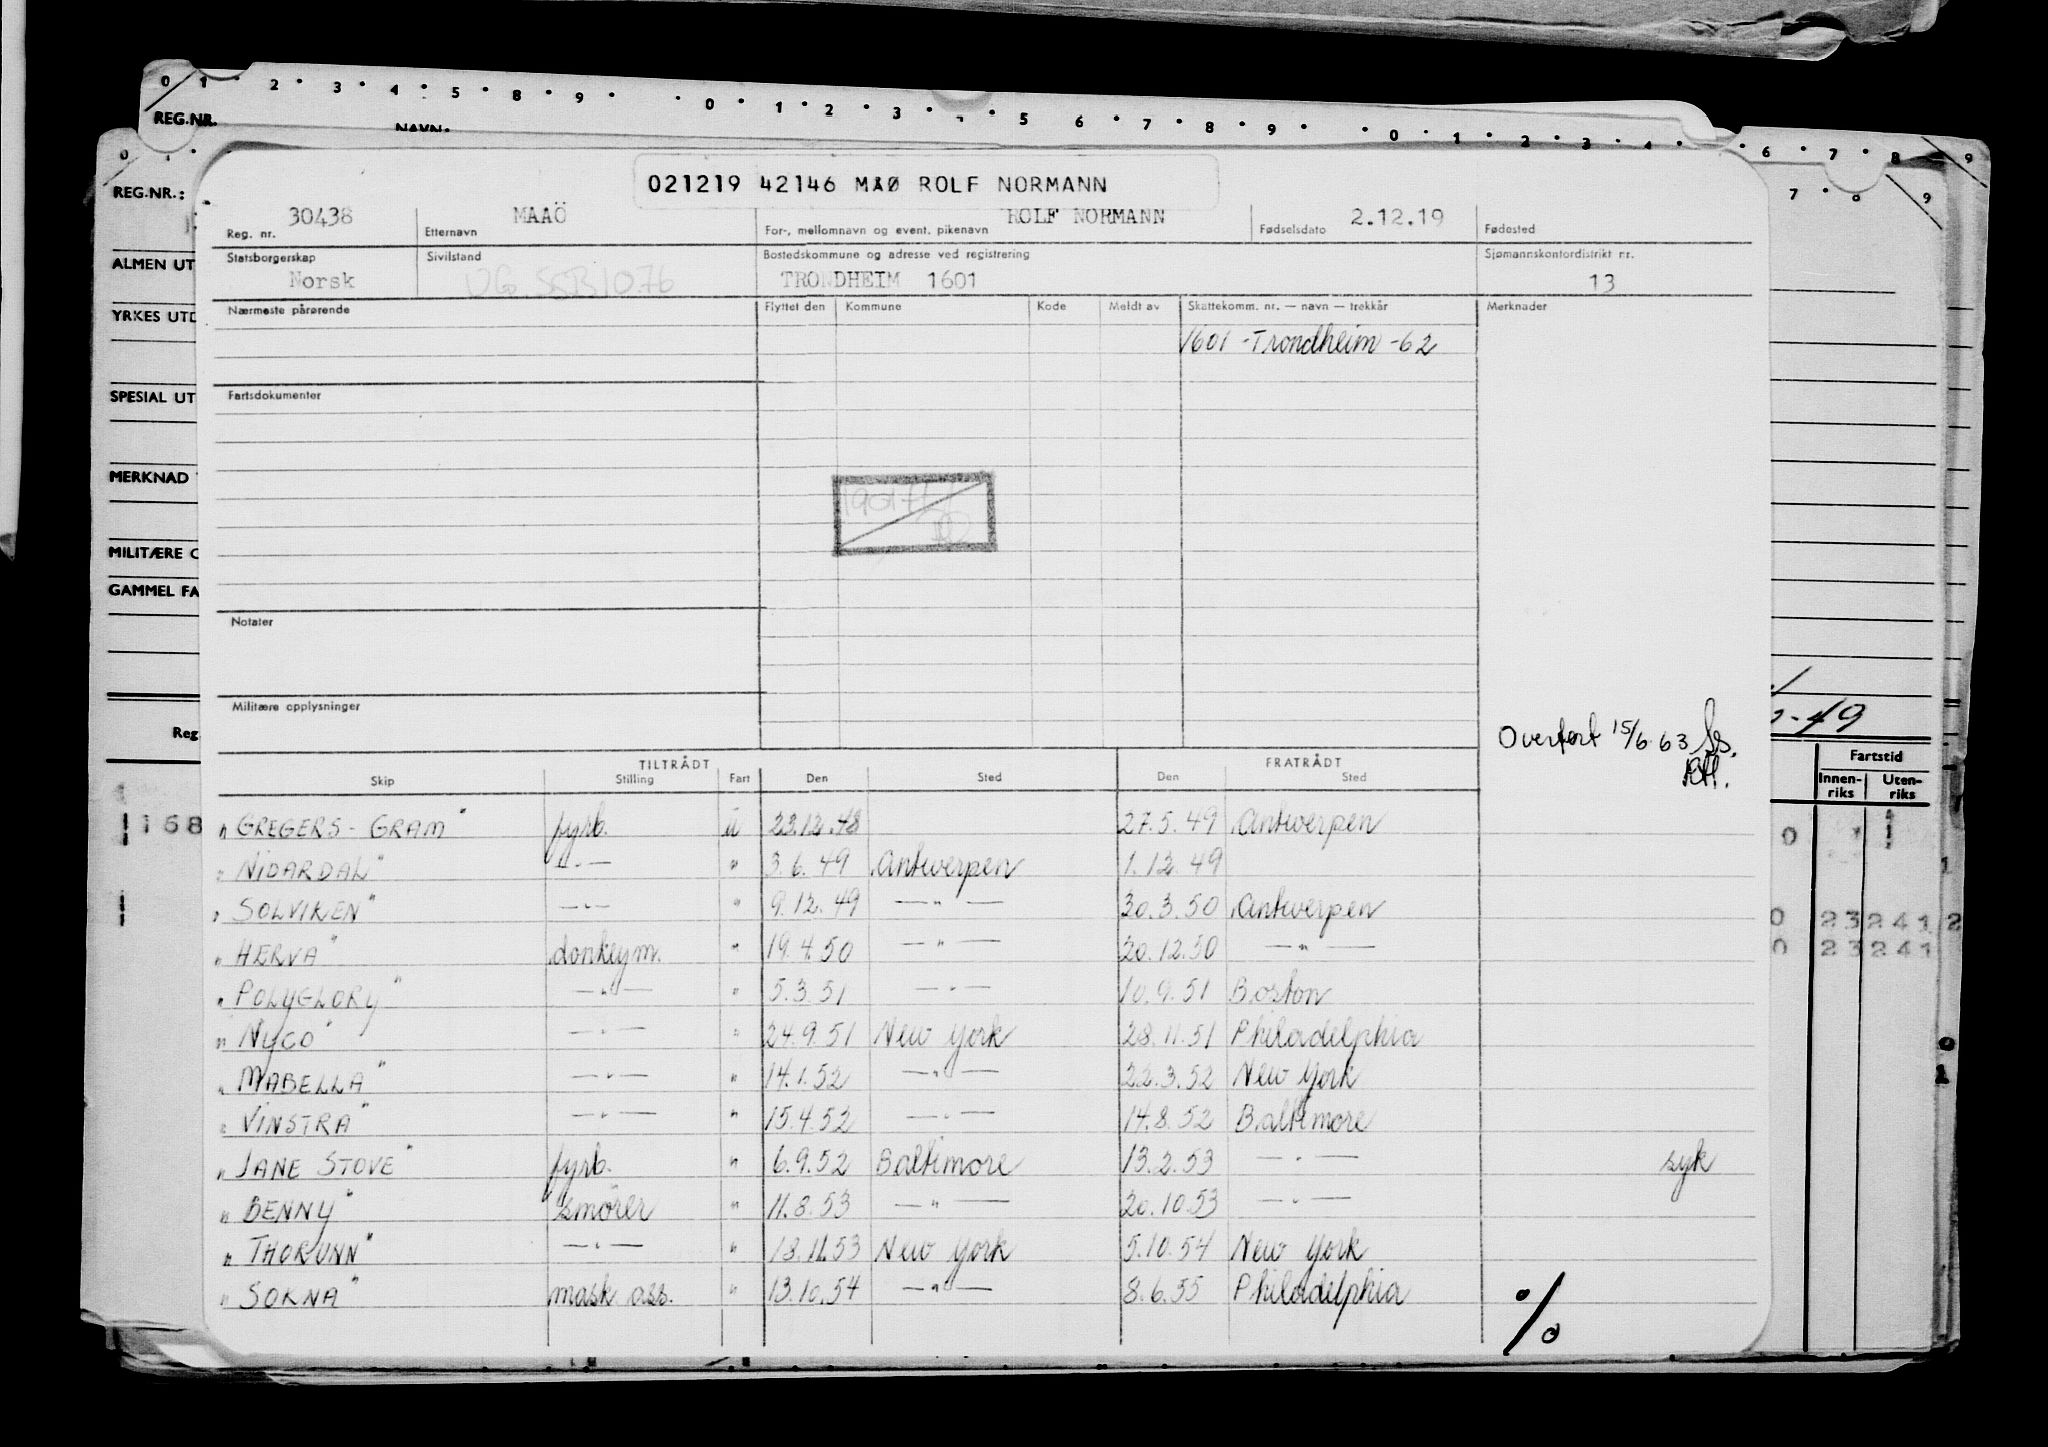 0 1 2 3 4 5 8 9 0 1 2 3 5 6 7 8 9 0 1 2 3 4 6 7 8 9
REG.NR.
NAVN:
REG.NR.:
7 8 9
021219 42146 MAØ ROLF NORMANN
30438 MAAÖ ROLF NORMANN 2.12.19
Reg. nr. Etternavn For-, mellomnavn og event. pikenavn Fødselsdato Fødested
Statsborgerskap Sivilstand Bostedskommune og adresse ved registrering Sjømannskontordistrikt nr.
Norsk TRONDHEIM 1601 13
Nærmeste pårørende Flyttet den Kommune Kode Meldt av Skattekomm. nr. — navn — trekkår Merknader
1601 - Trondheim - 62
Fartsdokumenter
Notater
Militære opplysninger
Overført 15/6 63
ALMEN UT
YRKES UTD
SPESIAL UT
MERKNAD
MILITÆRE O
GAMMEL FA
Reg
- 49
Fartstid
Innen-riks Uten-riks
TILTRÅDT FRATRÅDT
Skip Stilling Fart Den Sted Den Sted
" GREGERS-GRAM" fyrb. u 23.12.48 27.5.49 Antwerpen
" NIDARDAL" — " — " 3.6.49 Antwerpen 1.12.49
" SOLVIKEN" — " — " 9.12.49 — " — 30.3.50 Antwerpen
" HERVA" donkeym. " 19.4.50 — " — 20.12.50 — " —
" POLYGLORY" — " — " 5.3.51 — " — 10.9.51 Boston
" NYCO" — " — " 24.9.51 New York 28.11.51 Philadelphia
" MABELLA" — " — " 14.1.52 — " — 22.3.52 New York
" VINSTRA" — " — " 15.4.52 — " — 14.8.52 Baltimore
" JANE STOVE" fyrb. " 6.9.52 Baltimore 13.2.53 — " — syk
" BENNY" smører " 11.8.53 — " — 20.10.53 — " —
" THORUNN" — " — " 18.11.53 New York 5.10.54 New York
" SOKNA" mask ass. " 13.10.54 — " — 8.6.55 Philadelphia
%
1168
0 23 241 2
0 23 241